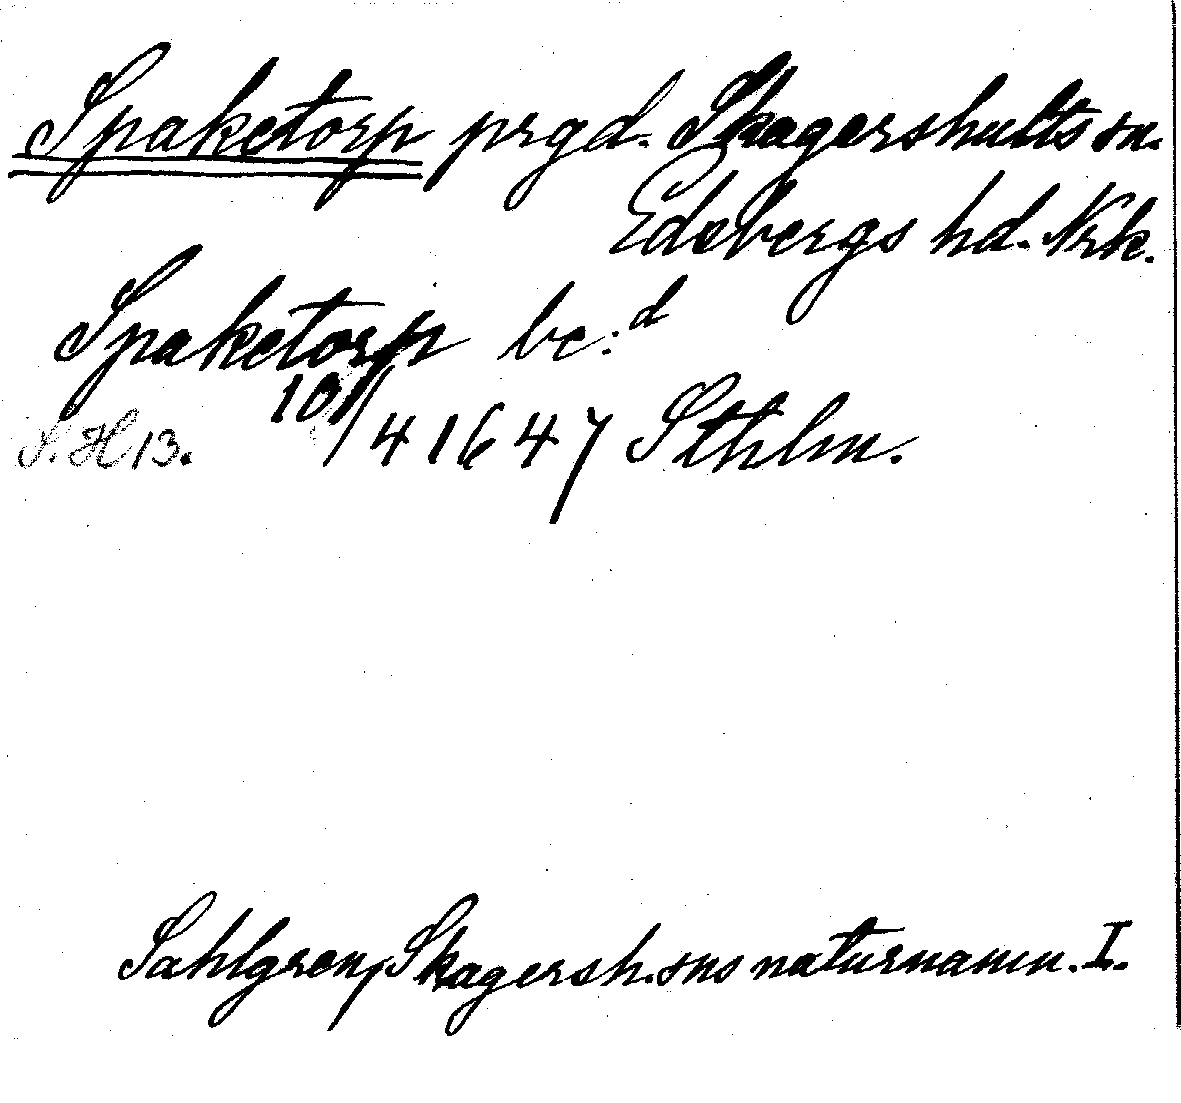 Spaketorp prgd. Skagershults sn.
Edsbergs hd. Nrk.
Spaketorp be:d
S. H 13. 10/4 1647 Sthlm.
Sahlgren, Skagersh. sns naturnamn. I.